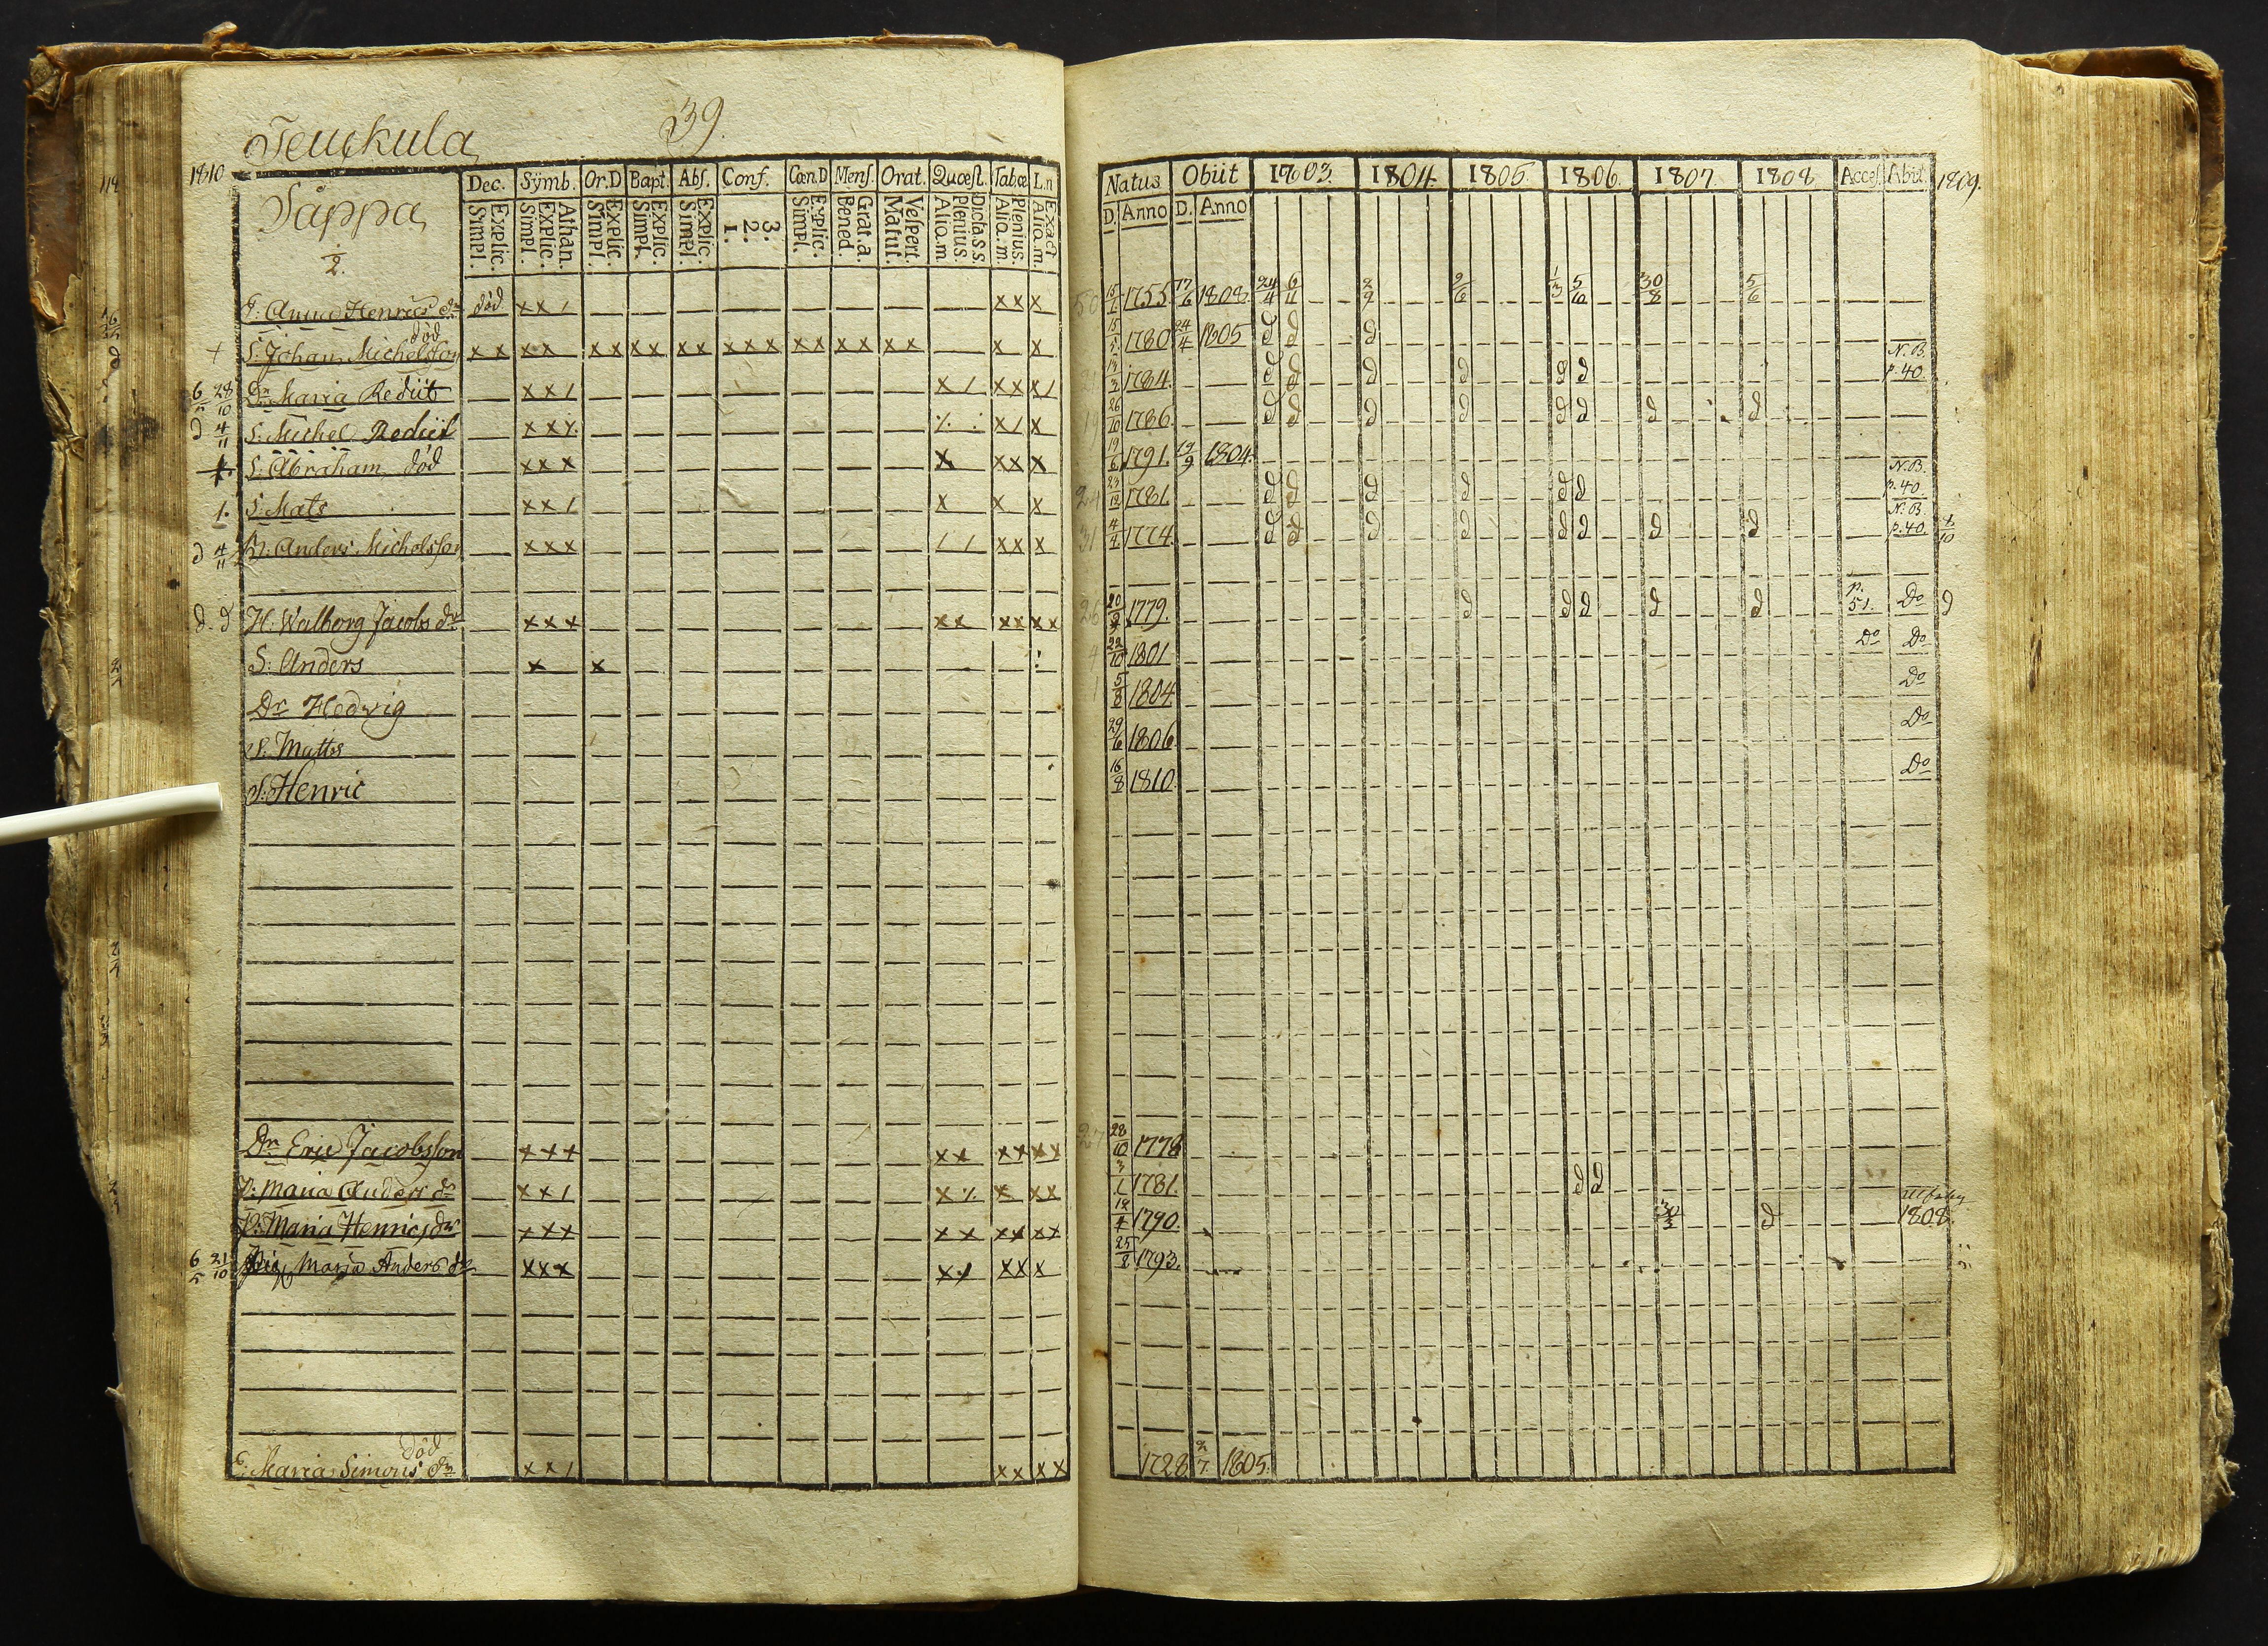 Teuckula
39.
1810
Såppa
1/2.
Dec. Sÿmb. Or.D Bapt. Abſ. Conf. Cœn.D Menſ. Orat. Quæſt. Tabæ L.n
Simpl. Explic. Simpl. Explic. Athan. Simpl. Explic. Simpl. Explic. Simpl. Explic. 1. 2. 3. Simpl. Explic. Bened. Grat.a. Matut. Veſpert. Alio.m Plenius. Dicta.s.s. Alio.m. Plenius. Alio.m. Exact
Natus Obiit 1803 1804. 1805. 1806. 1807. 1808. Acceſ. Abiit 1809.
D. Anno D. Anno
E: Anna Henrics dr död x x / x x x 15/1 1755 17/6 1808. 24/4 6/11 2/9 9/6 1/3 5/10 30/8 5/6
död
S: Johan Michelsſon x x x x x x x x x x x x x x x x x x x x x 15/1 1780 24/4 1805 d d d
6/5 28/10 Dr Maria Rediit x x / x / x x x / 1784. d d d d d d N.B. p. 40.
d 4/11 S: Michel Rediit x x x / x 26/10 1786. d d d d d d d d
S: Abraham död x x x x x x x 19/6 1791. 19/9 1804.
1. S: Mats x x / x x x 24 23/12 1781. d d d d d d N.B. p. 40
d 4/11 Anders Michelsſon x x x / / x x x 31 4/4 1774. d d d d d d d d N.B. p. 40. 8/10
d d H: Walborg Jacobs dr x x x x x x x x x 26 1779. d d d d d p. 51. Do d
S: Anders x x 4 22/10 1801 Do Do
Dr Hedvig 1 5/8 1804. Do
S: Matts 29/6 1806 Do
S: Henric 16/8 1810. Do
Dr Eric Jacobsſon x x x x x x x x x 27 28/10 1778
P: Maria Anders dr x x / x x x x 3/1 1781. d d
P: Maria Henrics dr x x x x x x x x x 1790. 30/3 d 1808.
6/5 21/10 Maria Anders dr x x x x / x x x 25/2 1793.
död
E: Maria Simons dr x x / x x x x 1728 2/7 1805.